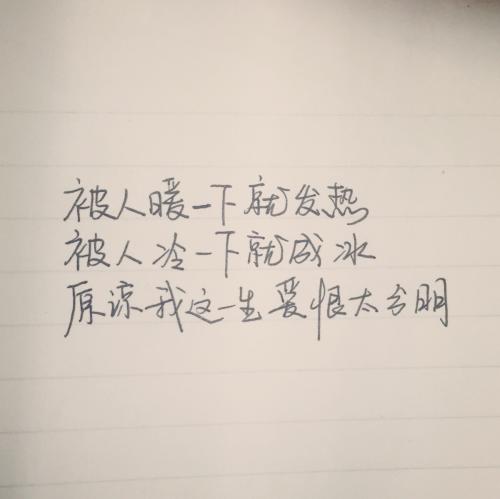 被人暖一下就发热
被人冷一下就成冰
原谅我这一生爱恨太分明